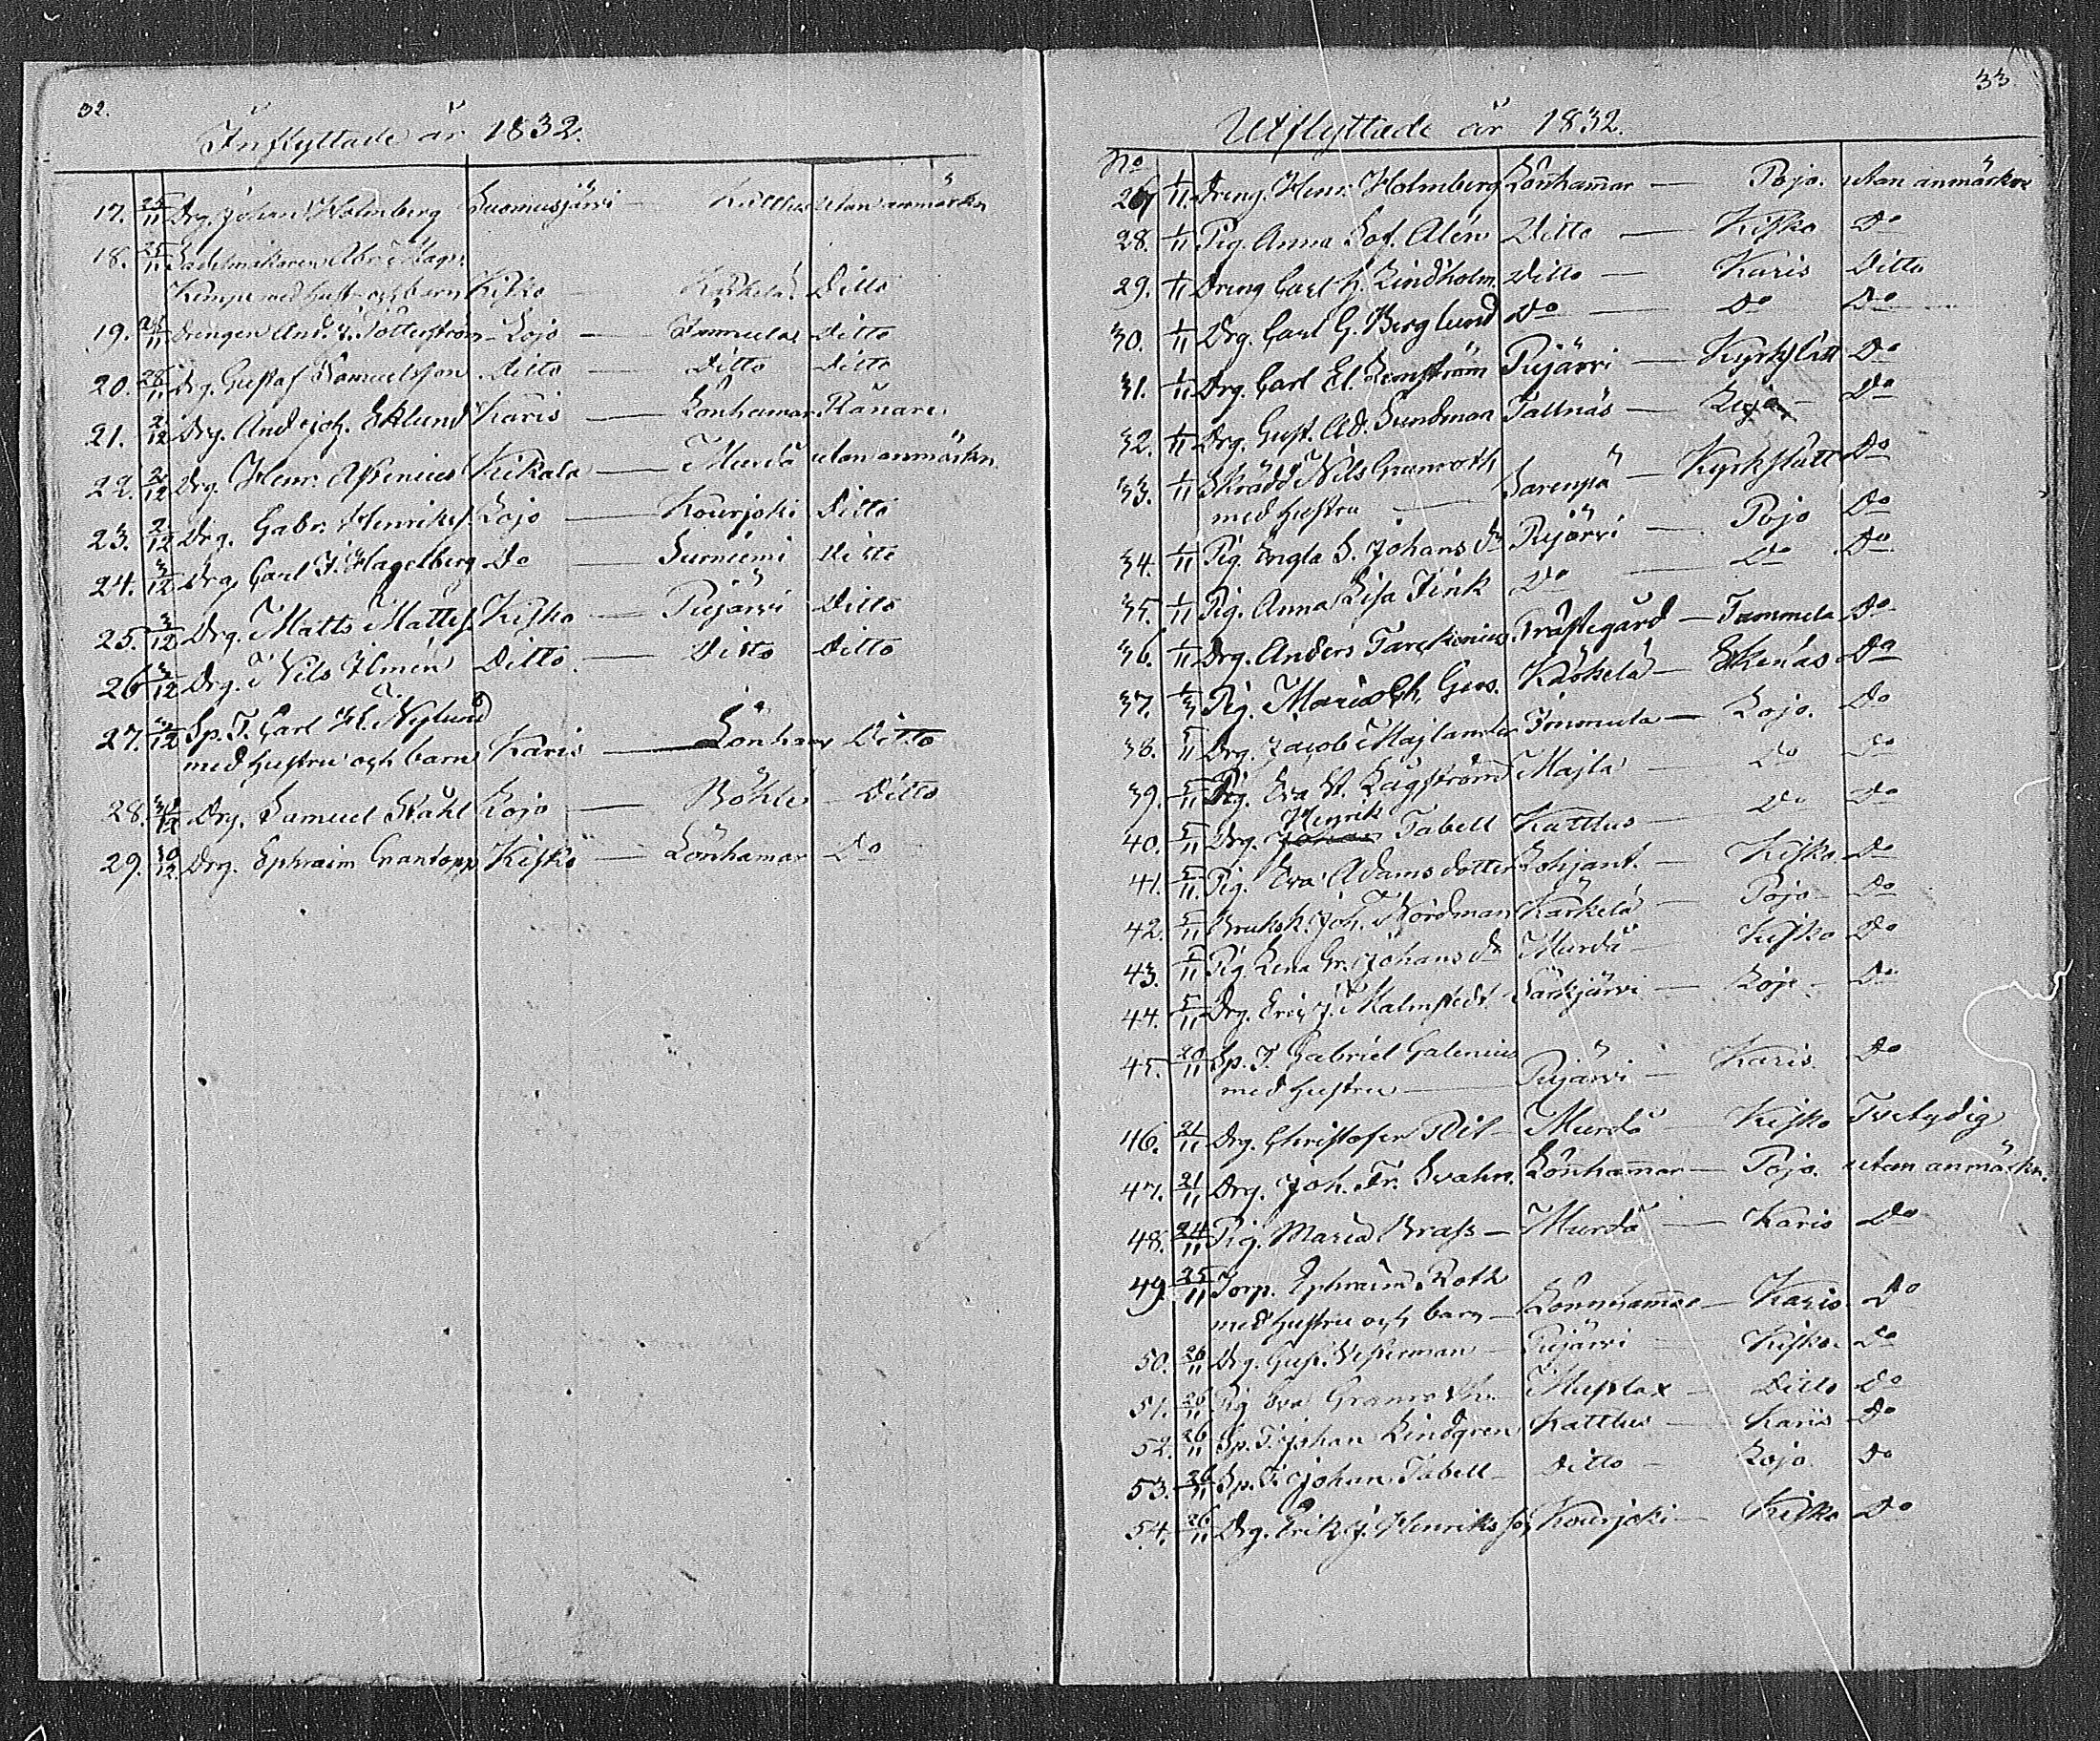 32.
Inflyttade år 1832.
17. 25/11 Drg. Johan Holmberg Suomusjärvi — Kattlus utan anmärkn
18. 25/11 Sadelmakaren Abr. Magn.
Kempe med hust. och barn Kisko — Kärkelä Ditto
19. 25/11 Drengen And. J. Sötterström Lojo — Immula Ditto
20. 25/11 Drg. Gustaf Samuelsson Ditto — Ditto Ditto
21. 2/12 Drg. And. Joh. Eklund Karis — Lönhamar Rånare
22. 2/12 Drg. Henr. Assenius Kikala — Murdå utan anmärkn
23. 2/12 Drg. Gabr. Henrikss. Lojo — Kourjoki Ditto
24. 3/12 Drg. Carl F. Hagelberg Do — Surniemi Ditto
25. 3/12 Drg. Matts Mattss. Kisko — Pujärvi Ditto
26 3/12 Drg. Nils Ilmén Ditto — Ditto Ditto
27. /12 Sp. T. Carl H. Nylund
med hustru och barn Karis — Lönham Ditto
28. /12 Drg. Samuel Ståhl Lojo — Böhle — Ditto
29. 30/12 Drg. Ephraim Grantopp Kisko — Lönhamar Do
33
Utflyttade år 1832.
No
27 1/11 Dreng. Henr. Holmberg Lönhammar — Pojo. utan anmärkn
28. 1/11 Pig. Anna Sof. Alén Ditto — Kisko Do
29. 1/11 Dreng Carl G. Lindholm Ditto — Karis Ditto
30. 1/11 Drg. Carl G. Berglund Do — Do Do
31. 1/11 Drg. Carl El. Lemström Pujärvi — Kyrkslätt Do
32. 1/11 Drg. Gust. Ad. Sundman Tallnäs — Lojo — Do
33. 1/11 Skrädd. Nils Granroth
med hustru — Sarenpä — Kyrkslätt Do
34. 1/11 Pig. Engla S. Johans dr Pujärvi — Pojo Do
35. 1/11 Pig. Anna Lisa Fink Do — Do Do
36. 1/11 Drg. Anders Tarchonius Prästegård — Tammela Do
37. Pig. Maria Ch. Gers. Kärkelä — Ekenäs Do
38. 5/11 Drg. Jacob Majlander Immula — Lojo. Do
39. 5/11 Pig. Eva St. Lagström Majla — Do Do
Henrik
40. 5/11 Drg. Johan Tabell Kattlus — Do Do
41. 5/11 Pig. Eva Adamsdotter Lohjant. — Kisko Do
42. 5/11 Bruksk. Joh. Nordman Kärkelä — Pojo — Do
43. 5/11 Pig. Lena Gr. Johans dr Murdå — Kisko Do
44. 5/11 Drg. Eric J. Malmstedt Särkjärvi — Lojo — Do
45. 20/11 Sp. T. Gabriel Galenius
med hustru — Pujärvi — Karis. Do
46. 21/11 Drg. Christofer Pil — Murdå — Kisko Tvetydig
47. 21/11 Drg. Joh. Fr. Svahn. Lönhammar — Pojo. utan anmärkn.
48. 24/11 Pig. Maria Brass — Murdå — Karis Do
49 25/11 Torp. Ephraim Roth
med hustru och barn — Lönnhammar — Karis. Do
50. 26/11 Drg. Gust. Wesserman — Pujärvi — Kisko. Do
51. 26/11 Pig Eva Granroth — Muslax — Ditto Do
52. 26/11 Sp. T. Johan Lindgren Kattlus — Karis Do
53. 26/11 Sp. T. Johan Tabell — Ditto — Lojo Do
54. 26/11 Drg. Erik J. Henriks son Kourjoki — Kisko Do